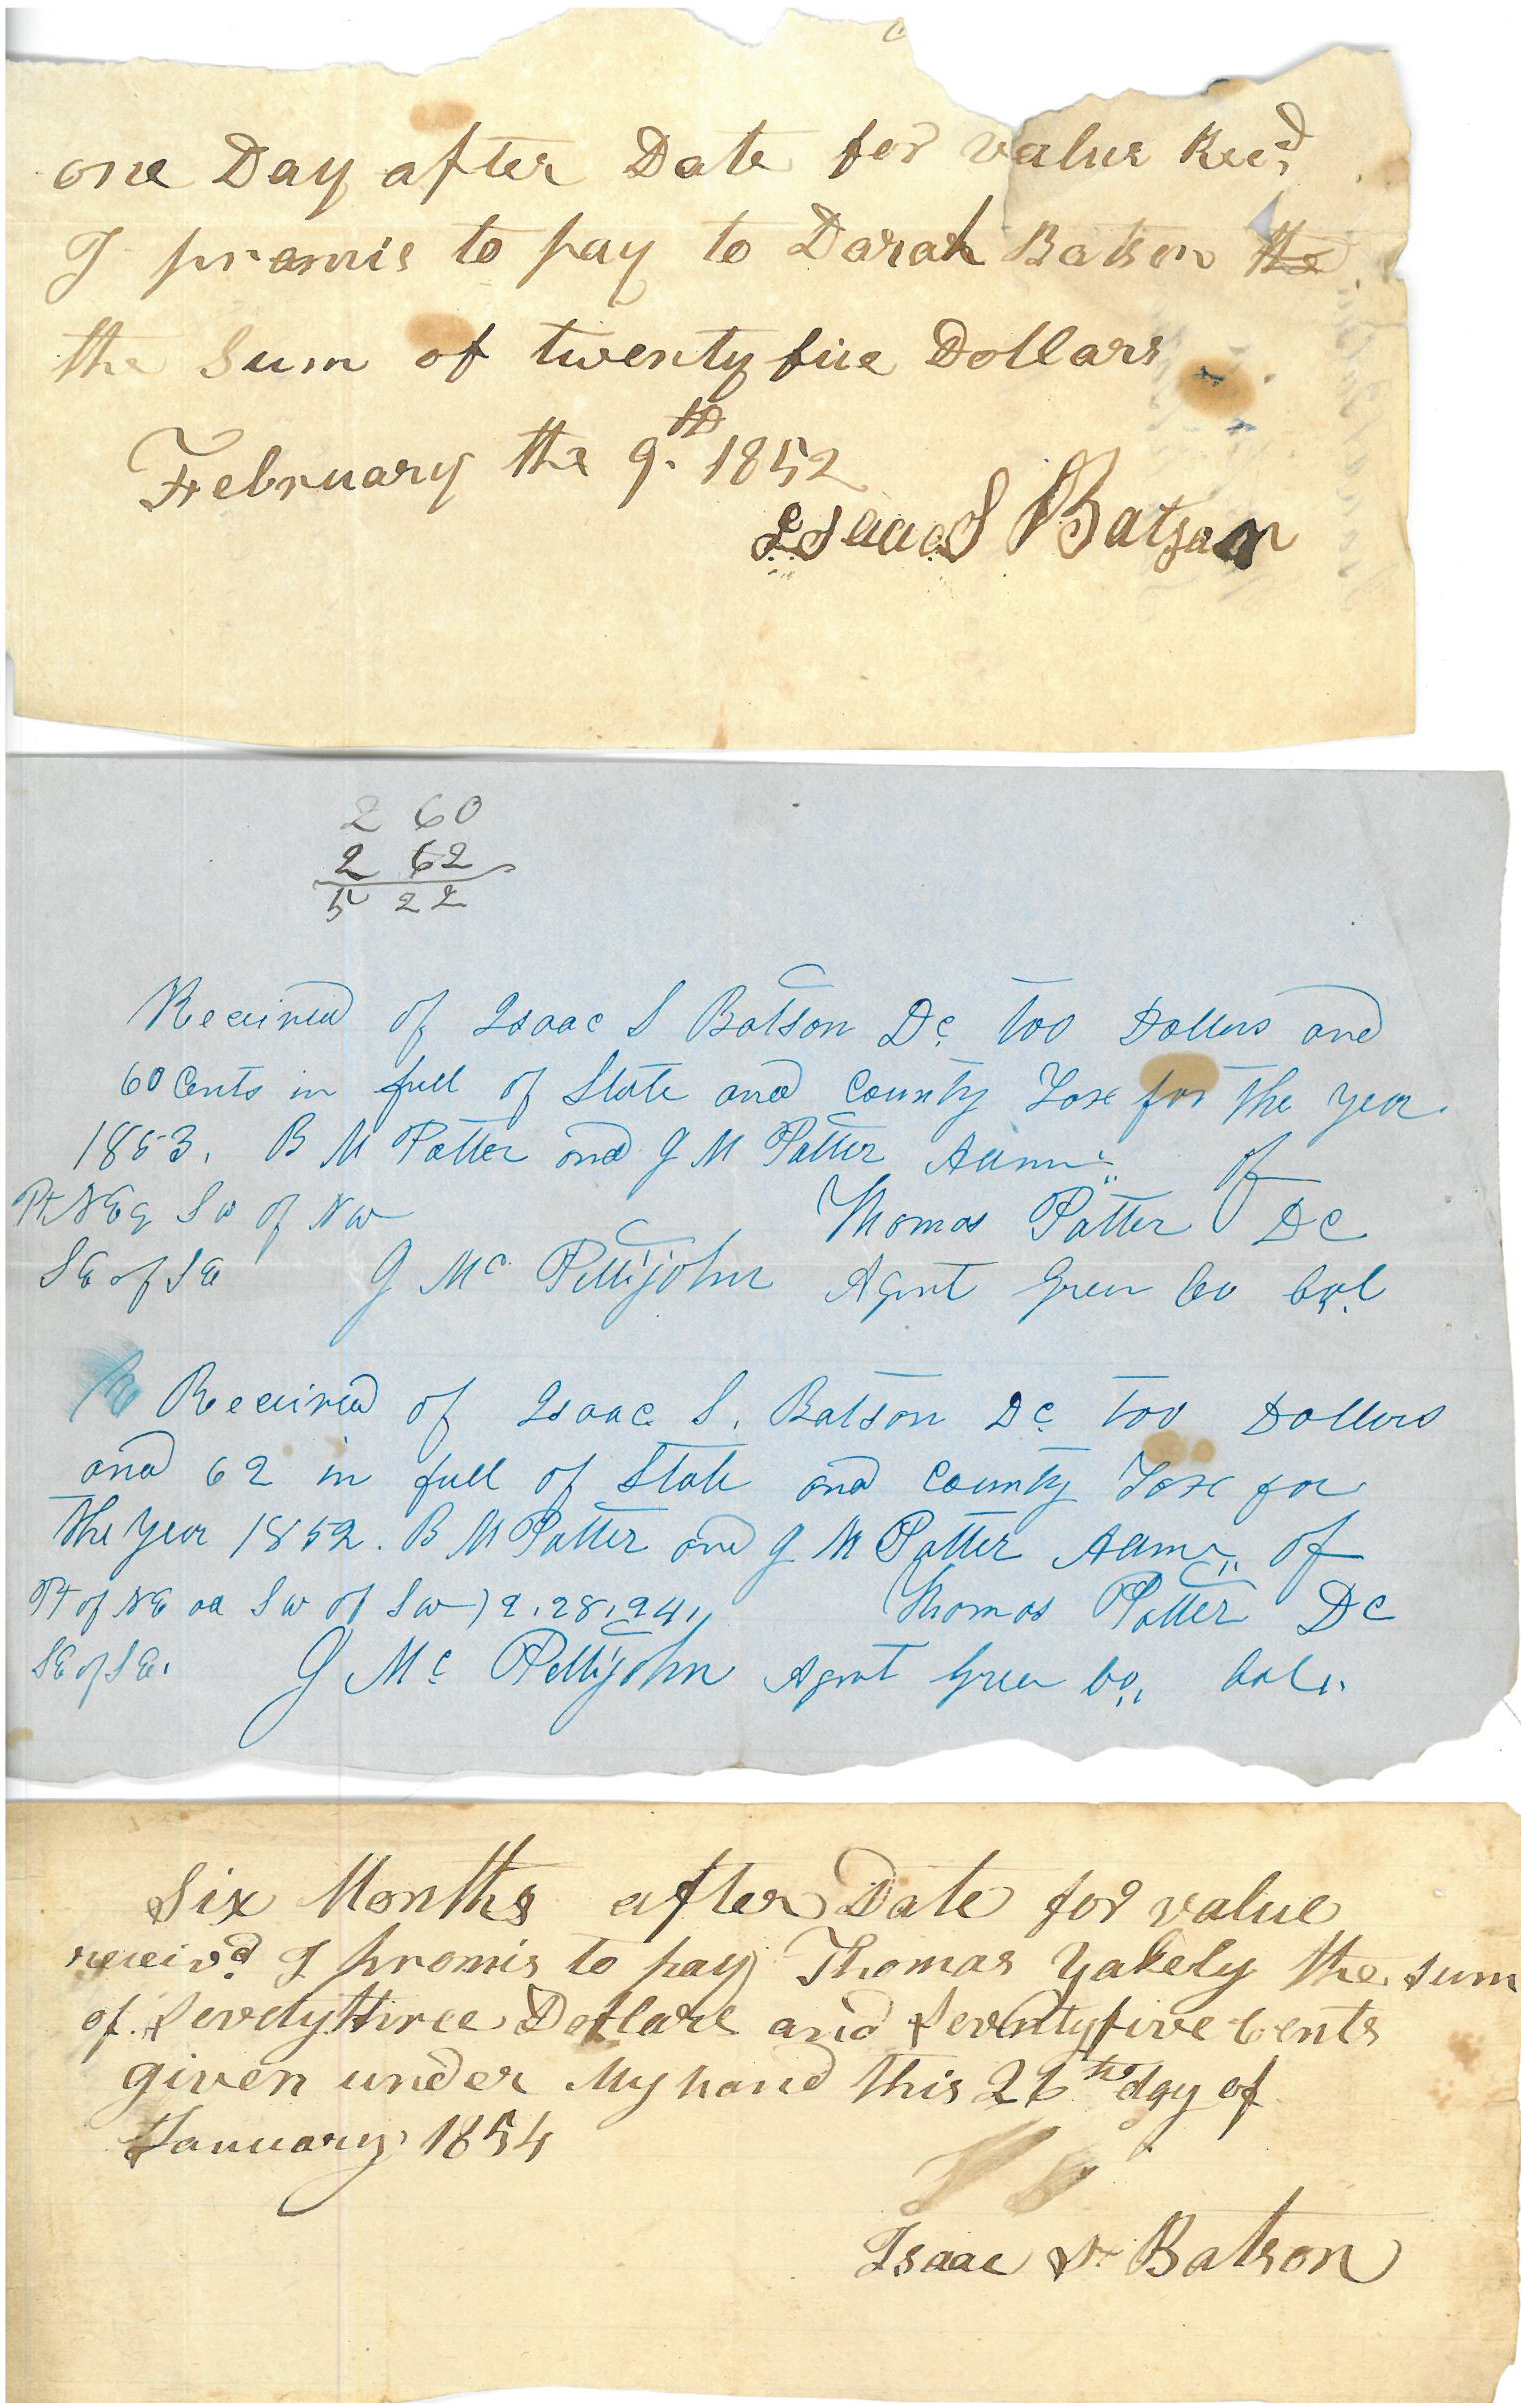 one Day after Date for value Recd
I promis to pay to Darah Batson the
the Sum of twenty five Dollars
February the 9th 1852
Isaac S Batson
2 60
2 62
5 22
Received of Isaac S Batson Dc too Dollers and
60 Cents in full of State and County Taxe for the year
1853. B M Potter and G M Potter Admr of
Pt NE & SW of NW Thomas Potter DC
SE of SE G Mc Pettijohn Agent Green Co Col
Received of Isaac S. Batson Dc too Dollers
and 62 in full of State and County Taxe for
the year 1852. B M Potter and G M Potter Admr of
Pt of NE SW of SW) 2.28.24 Thomas Potter DC
SE of SE. G Mc Pettijohn Agent Green Co. Col.
Six Months after Date for value
receivd I promis to pay Thomas Yakely the sum
of Sevetythree Dollare and Seventyfive Cents
given under My hand this 26th day of
January 1854
Isaac S Batson